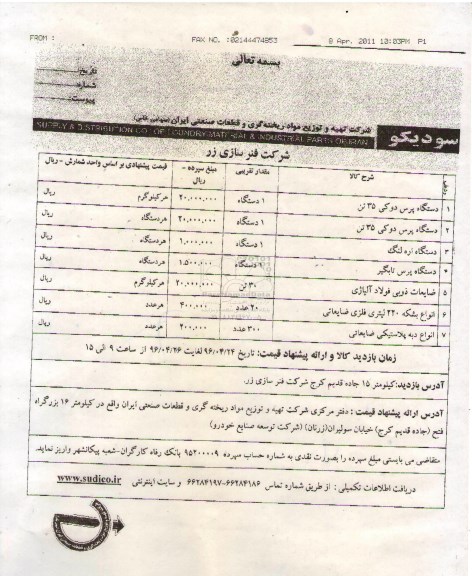 FROM : FAX NO. :02144474853 8 Apr. 2011 10:03PM P1
بسمه تعالی
تاریخ:
شماره:
پیوست:
شرکت تهیه و توزیع مواد ریخته‌گری و قطعات صنعتی ایران (سهامی خاص)
سودیکو
SUPPLY & DISTRIBUTION CO. OF FOUNDRY MATERIAL & INDUSTRIAL PARTS OF IRAN
شرکت فنر سازی زر
ردیف شرح کالا مقدار تقریبی مبلغ سپرده - ریال قیمت پیشنهادی بر اساس واحد شمارش - ریال
۱ دستگاه پرس دوکی ۳۵ تن ۱ دستگاه ۲۰,۰۰۰,۰۰۰ هرکیلوگرم ریال
۲ دستگاه پرس دوکی ۳۵ تن ۱ دستگاه ۲۰,۰۰۰,۰۰۰ هردستگاه ریال
۳ دستگاه اره لنگ ۱ دستگاه ۱,۰۰۰,۰۰۰ هردستگاه ریال
۴ دستگاه پرس تابگیر ۱ دستگاه ۱,۵۰۰,۰۰۰ هردستگاه ریال
۵ ضایعات ذوبی فولاد آلیاژی ۳۰ تن ۲۰,۰۰۰,۰۰۰ هرکیلوگرم ریال
۶ انواع بشکه ۲۲۰ لیتری فلزی ضایعاتی ۲۰ عدد ۴۰۰,۰۰۰ هرعدد ریال
۷ انواع دبه پلاستیکی ضایعاتی ۳۰۰ عدد ۴۰۰,۰۰۰ هرعدد ریال
زمان بازدید کالا و ارائه پیشنهاد قیمت: تاریخ ۹۶/۰۴/۲۴ لغایت ۹۶/۰۴/۲۶ از ساعت ۹ الی ۱۵
آدرس بازدید:کیلومتر ۱۵ جاده قدیم کرج شرکت فنر سازی زر
آدرس ارائه پیشنهاد قیمت : دفتر مرکزی شرکت تهیه و توزیع مواد ریخته گری و قطعات صنعتی ایران واقع در کیلومتر ۱۶ بزرگراه
فتح (جاده قدیم کرج) خیابان سولیران(زرنان) (شرکت توسعه صنایع خودرو)
متقاضی می بایستی مبلغ سپرده را بصورت نقدی به شماره حساب سپرده ۹۵۲۰۰۰۰۹ بانک رفاه کارگران-شعبه پیکانشهر واریز نماید.
دریافت اطلاعات تکمیلی : از طریق شماره تماس ۶۶۲۸۴۱۸۶-۶۶۲۸۴۱۹۷ و سایت اینترنتی www.sudico.ir